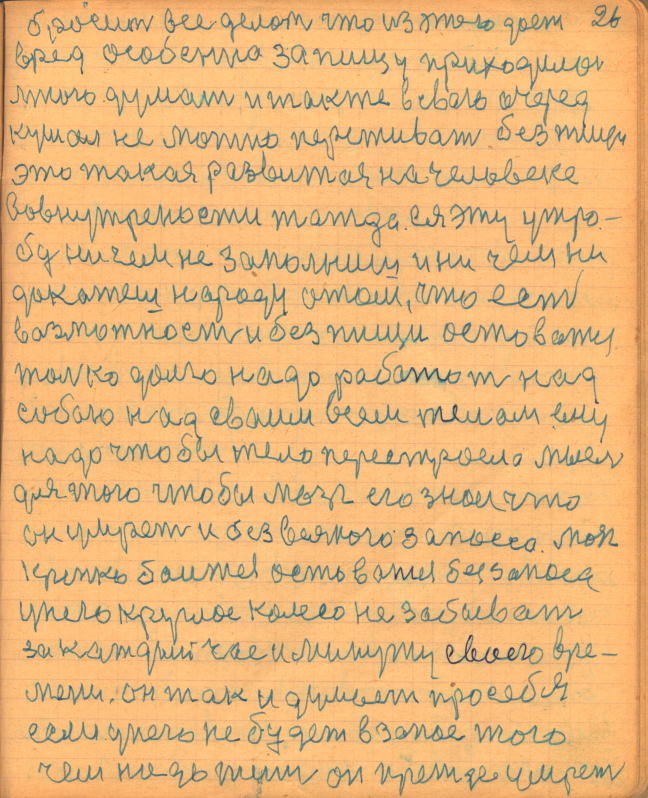 бросит все делат что из этого дает 26
вред особенно за пищу приходилос
много думат, и также в свою очеред
кушал не можно переживат без пищи
это такая развитая на человеке
вовнутрености жажда. ся эту утро-
бу ни чем не заполниш и ни чем ни
докажеш народу о том, что ест
возможност и без пищи оставатся
толко долго надо работат над
собою над сваим всем телам ему
надо чтобы тело перестроело мысл
для этого чтобы мозг его знал что
он умрет и без всякого запосса. мозг
крепко боится оставатся без запоса
у него круглое колесо не забыват
за каждый час и минуту своего вре-
мени. он так и думает про себя
если у него не будет в запос того
чем надо жит он прежде умрет